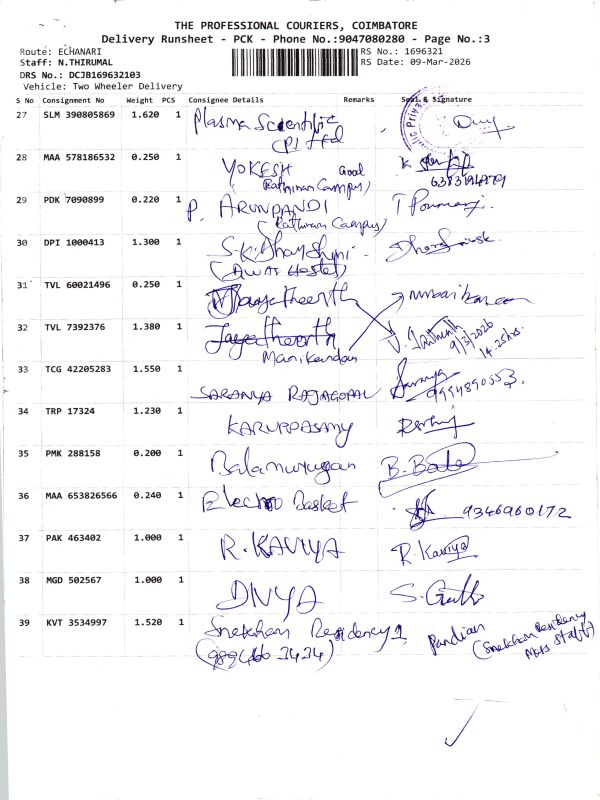 THE PROFESSIONAL COURIERS, COIMBATORE
Delivery Runsheet - PCK - Phone No.:9047080280 - Page No.:3
Route: ECHANARI RS No.: 1696321
Staff: N.THIRUMAL RS Date: 09-Mar-2026
DRS No.: DCJB169632103
Vehicle: Two Wheeler Delivery
S No Consignment No Weight PCS Consignee Details Remarks Seal & Signature
27 SLM 390805869 1.620 1 Plasma Scientific
(P) Ltd
28 MAA 578186532 0.250 1 YOKESH
(Rathinam Campus)
29 PDK 7090899 0.220 1 P. ARUNPANDI
(Rathinam Campus)
30 DPI 1000413 1.300 1
31 TVL 60021496 0.250 1
32 TVL 7392376 1.380 1
Manikandan
9/3/2026
14-25hrs.
33 TCG 42205283 1.550 1 SARANYA RAJAGOPAL Saranya
9994890553.
34 TRP 17324 1.230 1 KARUPPASAMY
35 PMK 288158 0.200 1 Balamurugan B. Bala
36 MAA 653826566 0.240 1 Electro Basket 9346960172
37 PAK 463402 1.000 1 R. KAVIYA R. Kaviya
38 MGD 502567 1.000 1 DIVYA
39 KVT 3534997 1.520 1 Snekham Residency Pandian
(Snekham Residency
Mess Staff)